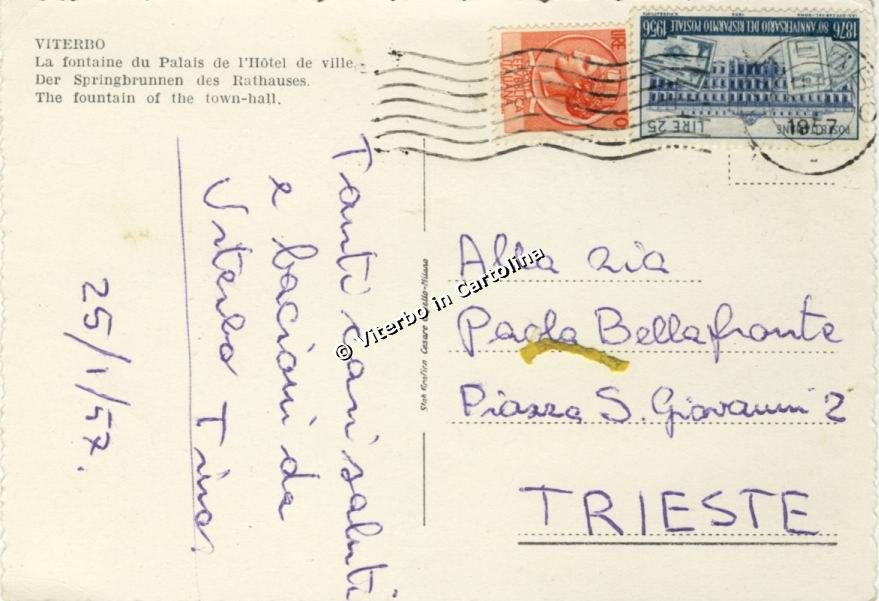 VITERBO
La fontaine du Palais de l'Hôtel de ville.
Der Springbrunnen des Rathauses.
The fountain of the town-hall.
LIRE
1876 80° ANNIVERSARIO DEL RISPARMIO POSTALE 1956
POSTE ITALIANE LIRE 25
1957
Tanti cari saluti
e bacioni da
Viterbo Tina.
25/1/57.
© Viterbo in Cartolina
Cesare Capello-Milano
Alla zia
Paola Bellafronte
Piazza S. Giovanni 2
TRIESTE